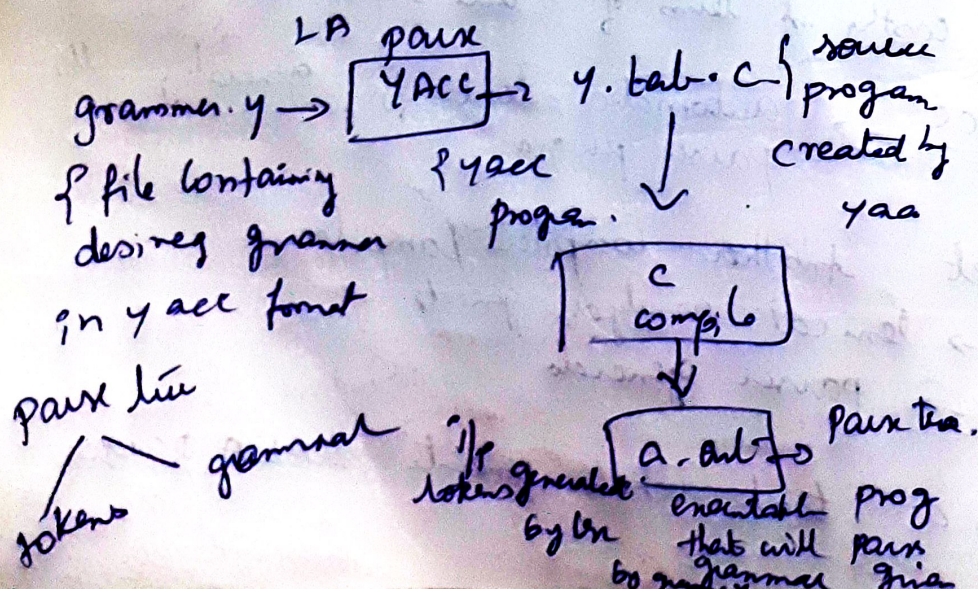 LA parse
grammer.y → YACC → y.tab.c { source
program
created by
yacc
{ file containing
desired grammer
in yacc format
{ yacc
program.
C
compile
parse tree
tokens grammar
a.out → Parse tree.
i/p
tokens generated
by lex
executable prog
that will parse
grammar given